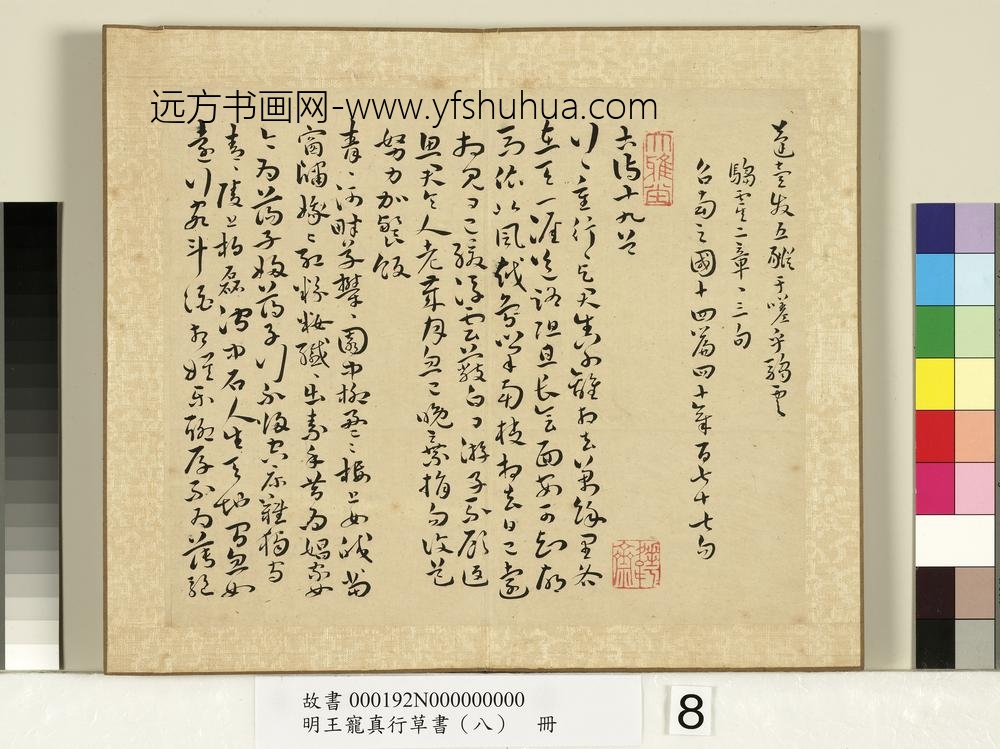 远方书画网-www.yfshuhua.com
蓬壹發五豵于嗟乎騶虞
騶虞二章〻三句
召南之國十四篇四十章百七十七句
大雅堂
古詩十九首
行〻重行〻與君生別離相去萬餘里各
在天一涯道路阻且長會面安可知胡
馬依北風越鳥巢南枝相去日已遠
衣帶日已緩浮雲蔽白日游子不顧返
思君令人老歲月忽已晚棄捐勿復道
努力加餐飯
青〻河畔草鬱〻園中柳盈〻樓上女皎〻當
窗牖娥〻紅粉妝纖〻出素手昔為娼家女
今為蕩子婦蕩子行不歸空床難獨守
青〻陵上柏磊〻澗中石人生天地間忽如
遠行客斗酒相娛樂聊厚不為薄驅
故書 000192N000000000
明王寵真行草書（八） 冊
8